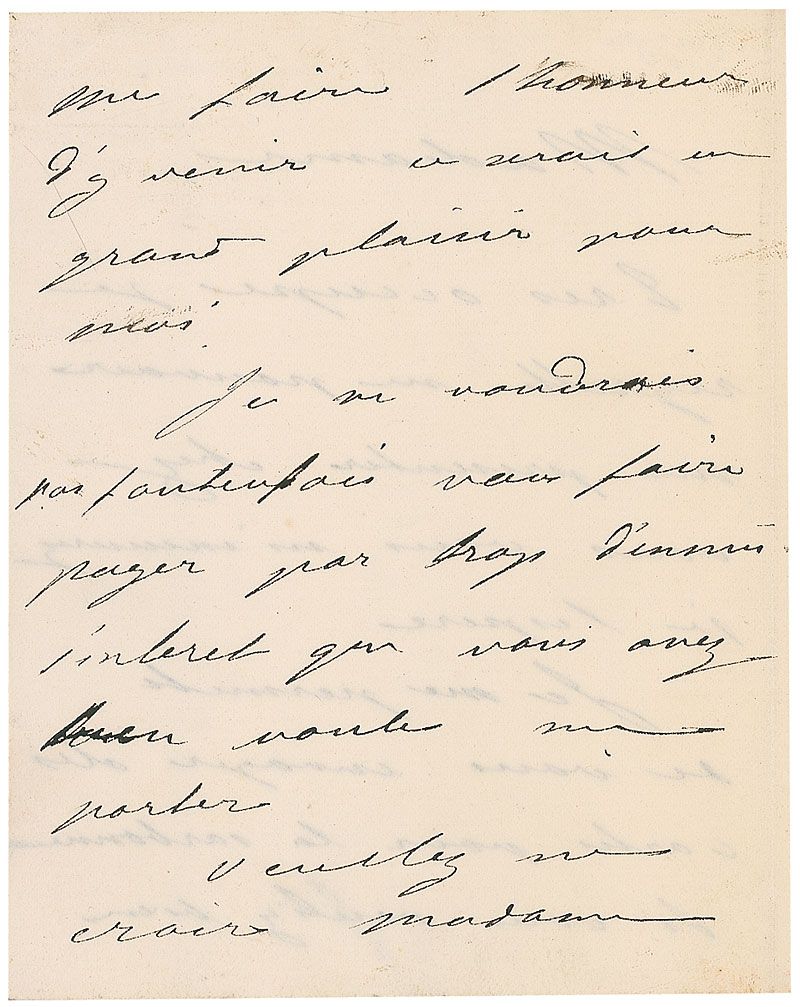 me faire l'honneur
d'y venir ce serait un
grand plaisir pour
moi
Je ne voudrais
pas toutefois vous faire
payer par trop d'ennui
l'interet que vous avez
bien voulu me
porter
Veuillez me
croire madame